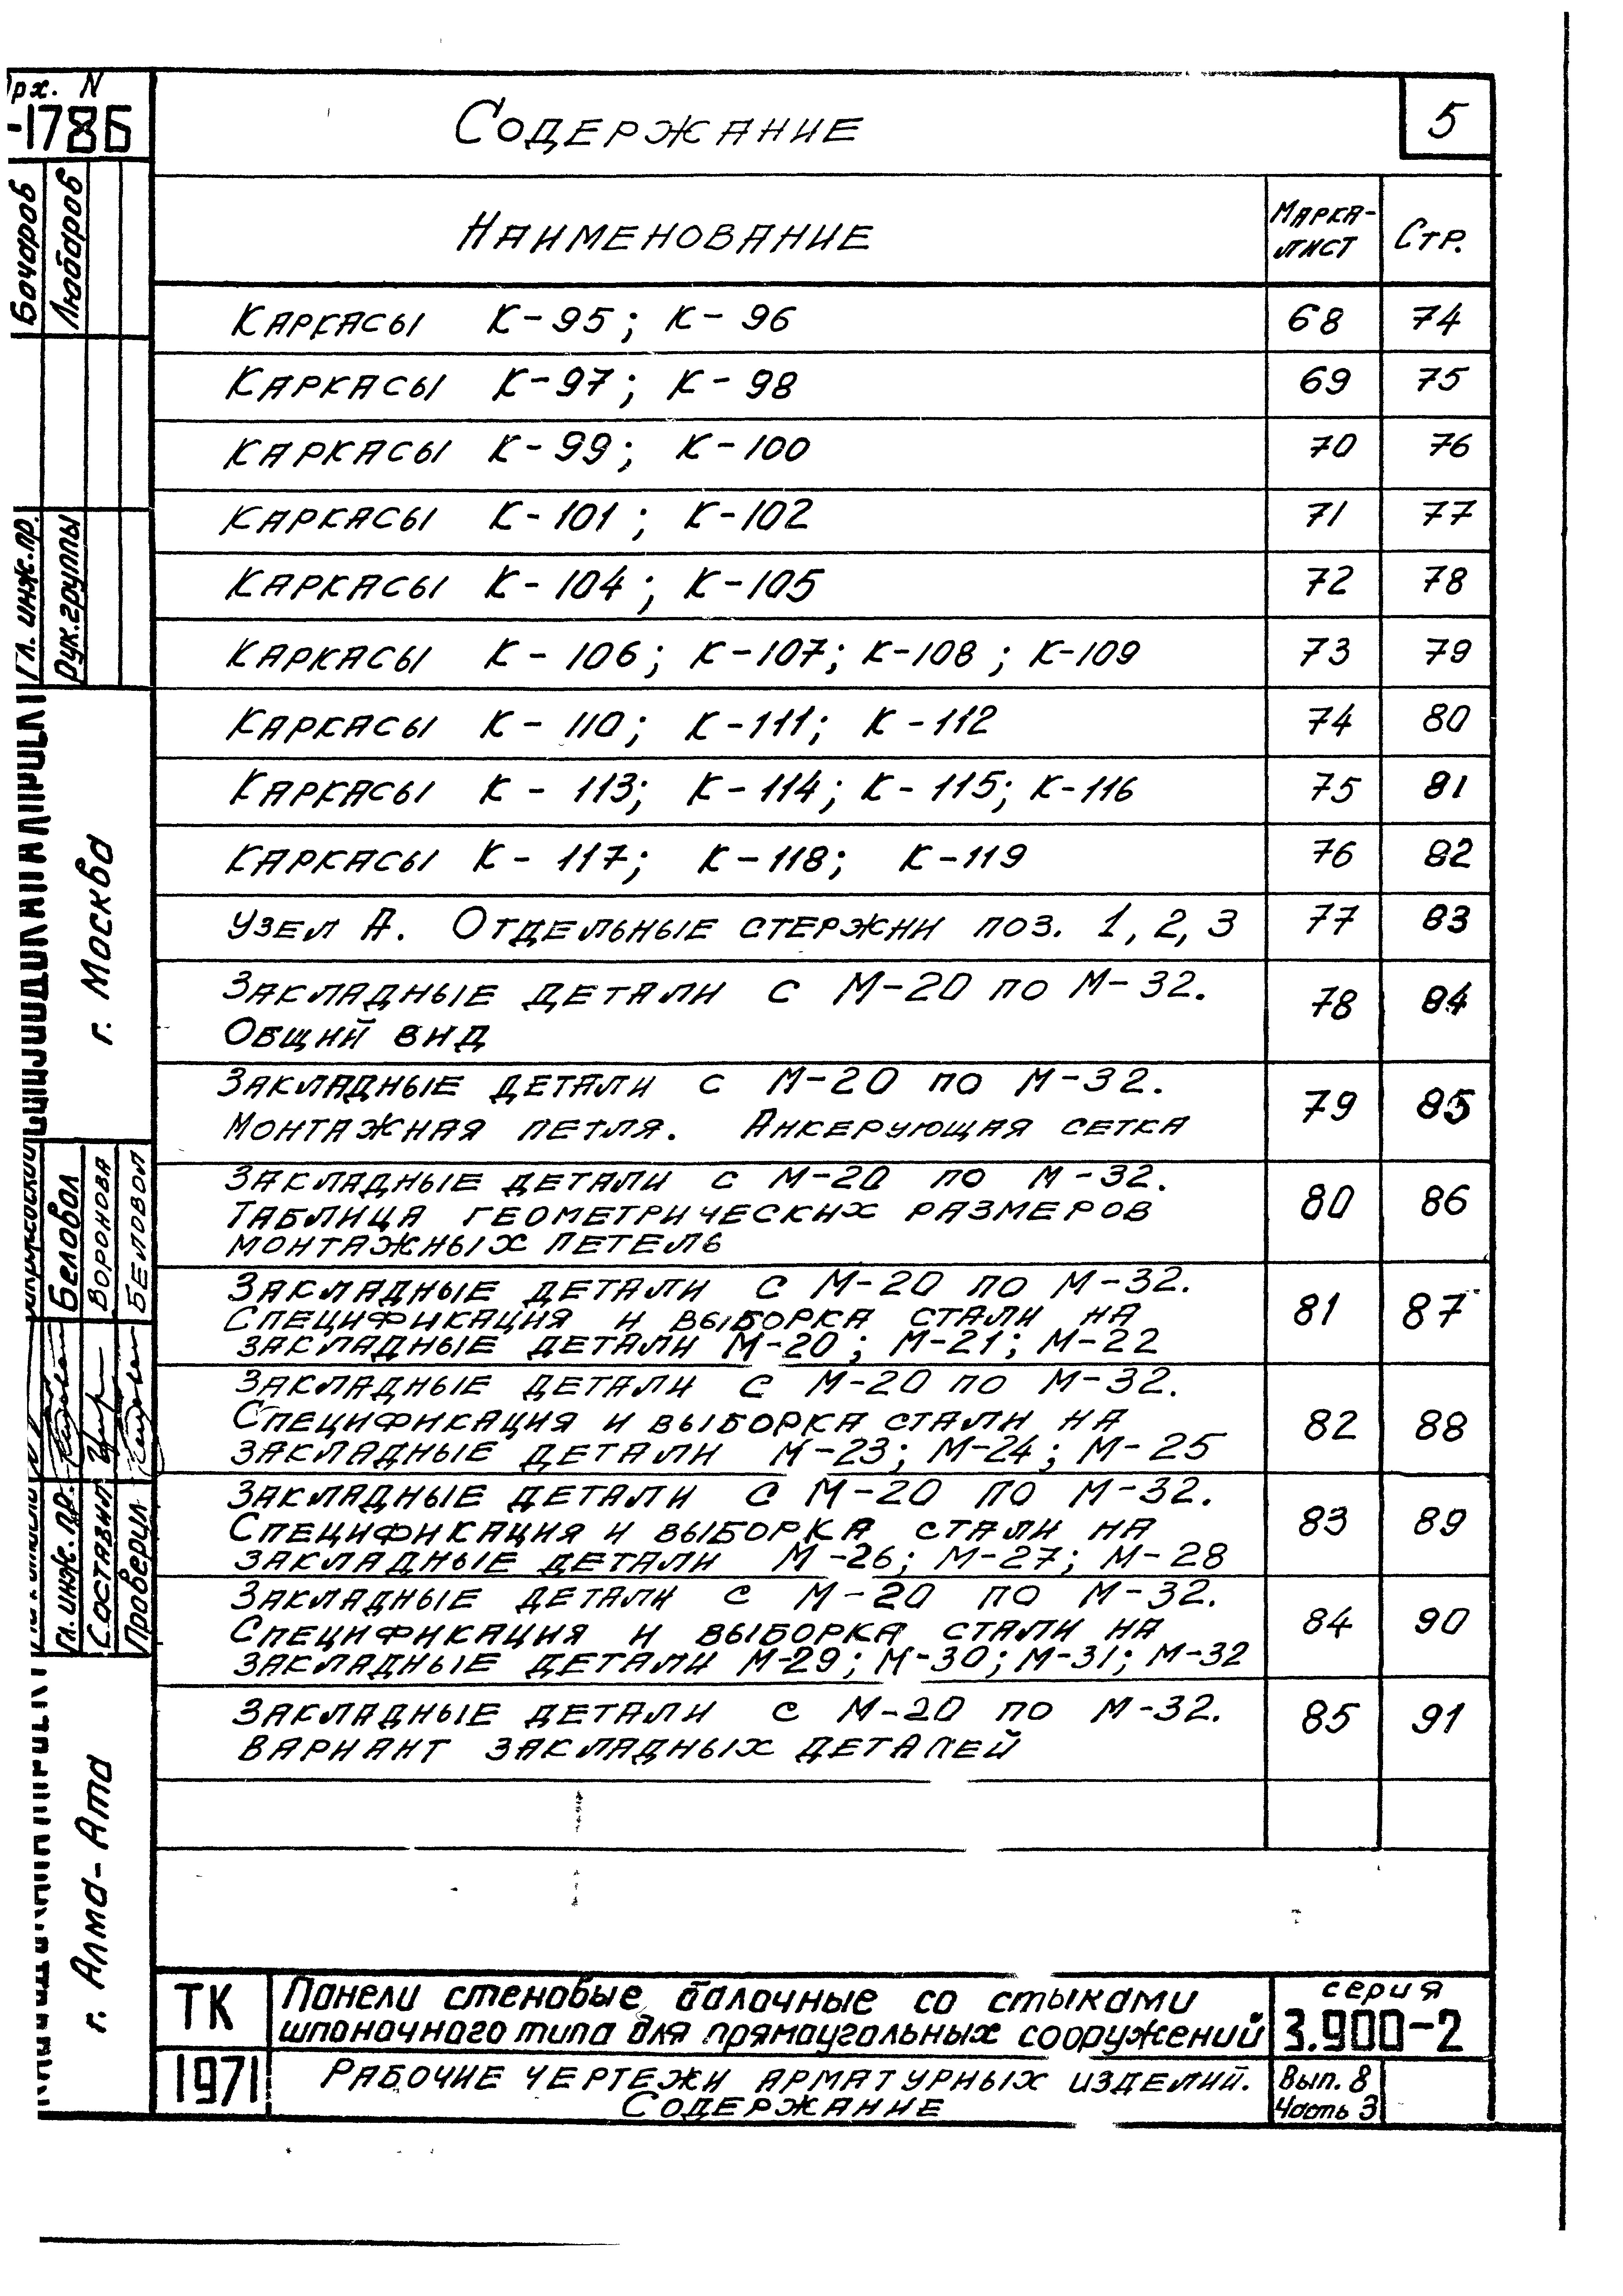 Содержание
5
Наименование
Марка-
лист
Стр.
Каркасы К-95; К-96 68 74
Каркасы К-97; К-98 69 75
Каркасы К-99; К-100 70 76
Каркасы К-101; К-102 71 77
Каркасы К-104; К-105 72 78
Каркасы К-106; К-107; К-108; К-109 73 79
Каркасы К-110; К-111; К-112 74 80
Каркасы К-113; К-114; К-115; К-116 75 81
Каркасы К-117; К-118; К-119 76 82
Узел А. Отдельные стержни поз. 1, 2, 3 77 83
Закладные детали с М-20 по М-32.
Общий вид 78 84
Закладные детали с М-20 по М-32.
Монтажная петля. Анкерующая сетка 79 85
Закладные детали с М-20 по М-32.
Таблица геометрических размеров 80 86
монтажных петель
Закладные детали с М-20 по М-32.
Спецификация и выборка стали на 81 87
закладные детали М-20; М-21; М-22
Закладные детали с М-20 по М-32.
Спецификация и выборка стали на 82 88
закладные детали М-23; М-24; М-25
Закладные детали с М-20 по М-32.
Спецификация и выборка стали на 83 89
закладные детали М-26; М-27; М-28
Закладные детали с М-20 по М-32.
Спецификация и выборка стали на 84 90
закладные детали М-29; М-30; М-31; М-32
Закладные детали с М-20 по М-32. 85 91
Вариант закладных деталей
ТК
1971
Панели стеновые балочные со стыками
шпоночного типа для прямоугольных сооружений
серия
3.900-2
Рабочие чертежи арматурных изделий.
Содержание
Вып. 8
Часть 3
рх. N
-1786
Бочаров
Любаров
Гл. инж. пр.
Рук. группы
г. Москва
Беловол
Воронова
Беловол
Гл. инж. пр.
Составил
Проверил
г. Алма-Ата